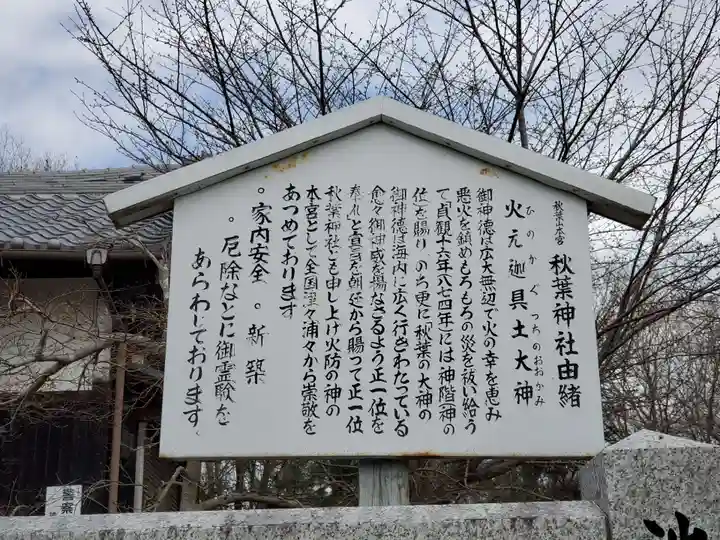 秋葉山本宮 秋葉神社由緒
ひのかぐつちのおおかみ
火元迦具土大神
御神徳は広大無辺で火の幸を恵み
悪火を鎮めもろもろの災を祓い給う
て貞観十六年(八七四年)には神階(神の
位を賜り のち更に秋葉の大神の
御神徳は海内に広く行きわたっている
愈々御神威を揚なさるよう正一位を
奉れと宣旨を朝廷から賜って正一位
秋葉神社とも申し上げ火防の神の
本宮として全国津々浦々から崇敬を
あつめております
。家内安全 。新築
。厄除などに御霊験を
あらわしております。
警察